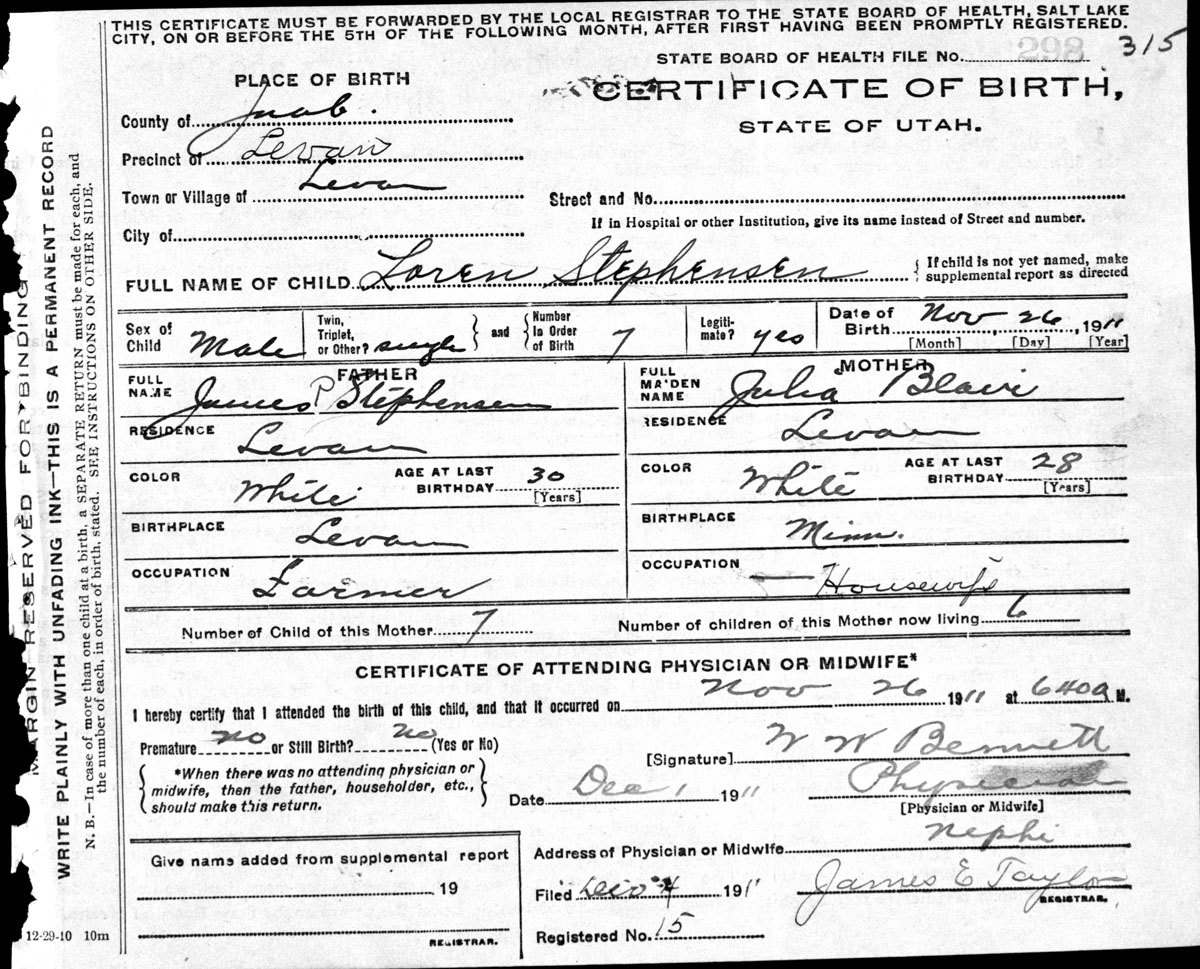 THIS CERTIFICATE MUST BE FORWARDED BY THE LOCAL REGISTRAR TO THE STATE BOARD OF HEALTH, SALT LAKE
CITY, ON OR BEFORE THE 5TH OF THE FOLLOWING MONTH, AFTER FIRST HAVING BEEN PROMPTLY REGISTERED.
315
STATE BOARD OF HEALTH FILE No.
298
PLACE OF BIRTH
CERTIFICATE OF BIRTH,
STATE OF UTAH.
County of Juab.
Precinct of Levan
Town or Village of Levan
Street and No.
If in Hospital or other Institution, give its name instead of Street and number.
City of
FULL NAME OF CHILD Loren Stephensen
If child is not yet named, make
supplemental report as directed
Sex of
Child Male
Twin,
Triplet,
or Other? single
and
Number
In Order
of Birth 7
Legiti-
mate? yes
Date of
Birth Nov 26, 1911
[Month] [Day] [Year]
FATHER
FULL
NAME James P Stephensen
RESIDENCE
Levan
COLOR
White
AGE AT LAST
BIRTHDAY 30
[Years]
BIRTHPLACE
Levan
OCCUPATION
Farmer
MOTHER
FULL
MAIDEN
NAME Julia Blair
RESIDENCE
Levan
COLOR
White
AGE AT LAST
BIRTHDAY 28
[Years]
BIRTHPLACE
Minn.
OCCUPATION
Housewife
Number of Child of this Mother 7
Number of children of this Mother now living 6
CERTIFICATE OF ATTENDING PHYSICIAN OR MIDWIFE*
I hereby certify that I attended the birth of this child, and that it occurred on Nov 26 1911 at 640a M.
Premature no or Still Birth? no (Yes or No)
*When there was no attending physician or
midwife, then the father, householder, etc.,
should make this return.
[Signature] W W Bennett
Date Dec 1 1911
Physician
[Physician or Midwife]
Give name added from supplemental report
19
REGISTRAR.
Address of Physician or Midwife Nephi
Filed 4 1911
James E Taylor
REGISTRAR.
Registered No. 15
MARGIN RESERVED FOR BINDING
WRITE PLAINLY WITH UNFADING INK—THIS IS A PERMANENT RECORD
N. B.—In case of more than one child at a birth, a SEPARATE RETURN must be made for each, and
the number of each, in order of birth, stated. SEE INSTRUCTIONS ON OTHER SIDE.
12-29-10 10m